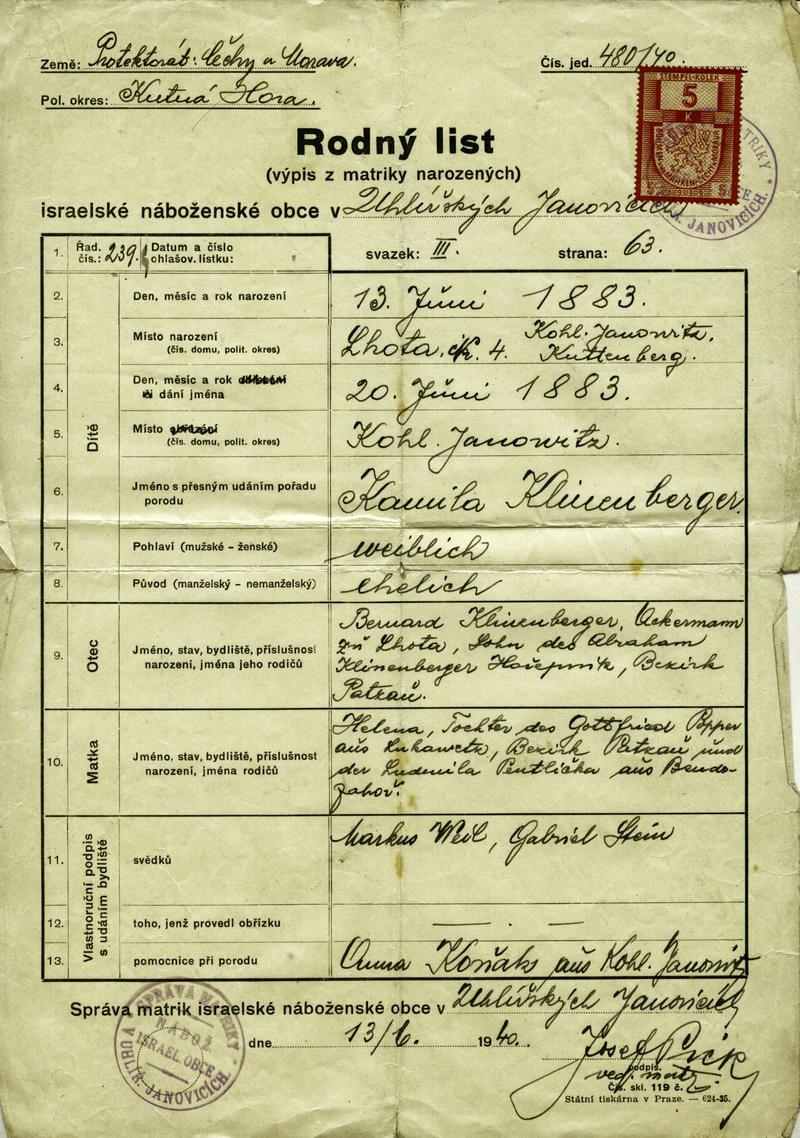 Země: Protektorát: Čechy a Morava.
Čís. jed. 480/40.
Pol. okres: Kutná Hora.
STEMPEL-KOLEK
5
K
Rodný list
(výpis z matriky narozených)
israelské náboženské obce v Uhlířských Janovicích
1. Řad. čís.: 239. Datum a číslo ohlašov. lístku:
svazek: III. strana: 63.
Dítě
2. Den, měsíc a rok narození 13. Juni 1883.
3. Místo narození Lhota, čk. 4. Kohl. Janowitz,
(čís. domu, polit. okres) Kuttenberg.
4. Den, měsíc a rok
dání jména 20. Juni 1883.
5. Místo obřezání
(čís. domu, polit. okres) Kohl. Janowitz.
6. Jméno s přesným udáním pořadu
porodu Kamila Klinenberger.
7. Pohlaví (mužské – ženské) weiblich
8. Původ (manželský – nemanželský) ehelich
Otec
9. Jméno, stav, bydliště, příslušnost
narození, jména jeho rodičů
Bernard Klinenberger, Ackermann
zu Lhota, Sohn des Abraham
Klinenberger Hořepník, Bezirk
Patzau.
Matka
10. Jméno, stav, bydliště, příslušnost
narození, jména rodičů
Helena, Tochter des Gottfried Popper
aus Lukawetz, Bezirk Patzau und
der Ludmila Pentlička aus Bendo-
zahoř.
Vlastnoruční podpis
s udáním bydliště
11. svědků Markus Weil, Gabriel Stein
12. toho, jenž provedl obřízku — . —
13. pomocnice při porodu Anna Korňak aus Kohl. Janowitz
Správa matrik israelské náboženské obce v Uhlířských Janovicích
SPRÁVA MATRIKY
NÁBOŽ.
ISRAEL. OBCE
V UHLÍŘ. JANOVICÍCH.
dne 13/6. 1940.
Josef Pick
podpis.
ved. matr.
Čís. skl. 119 č.
Státní tiskárna v Praze. — 624-35.